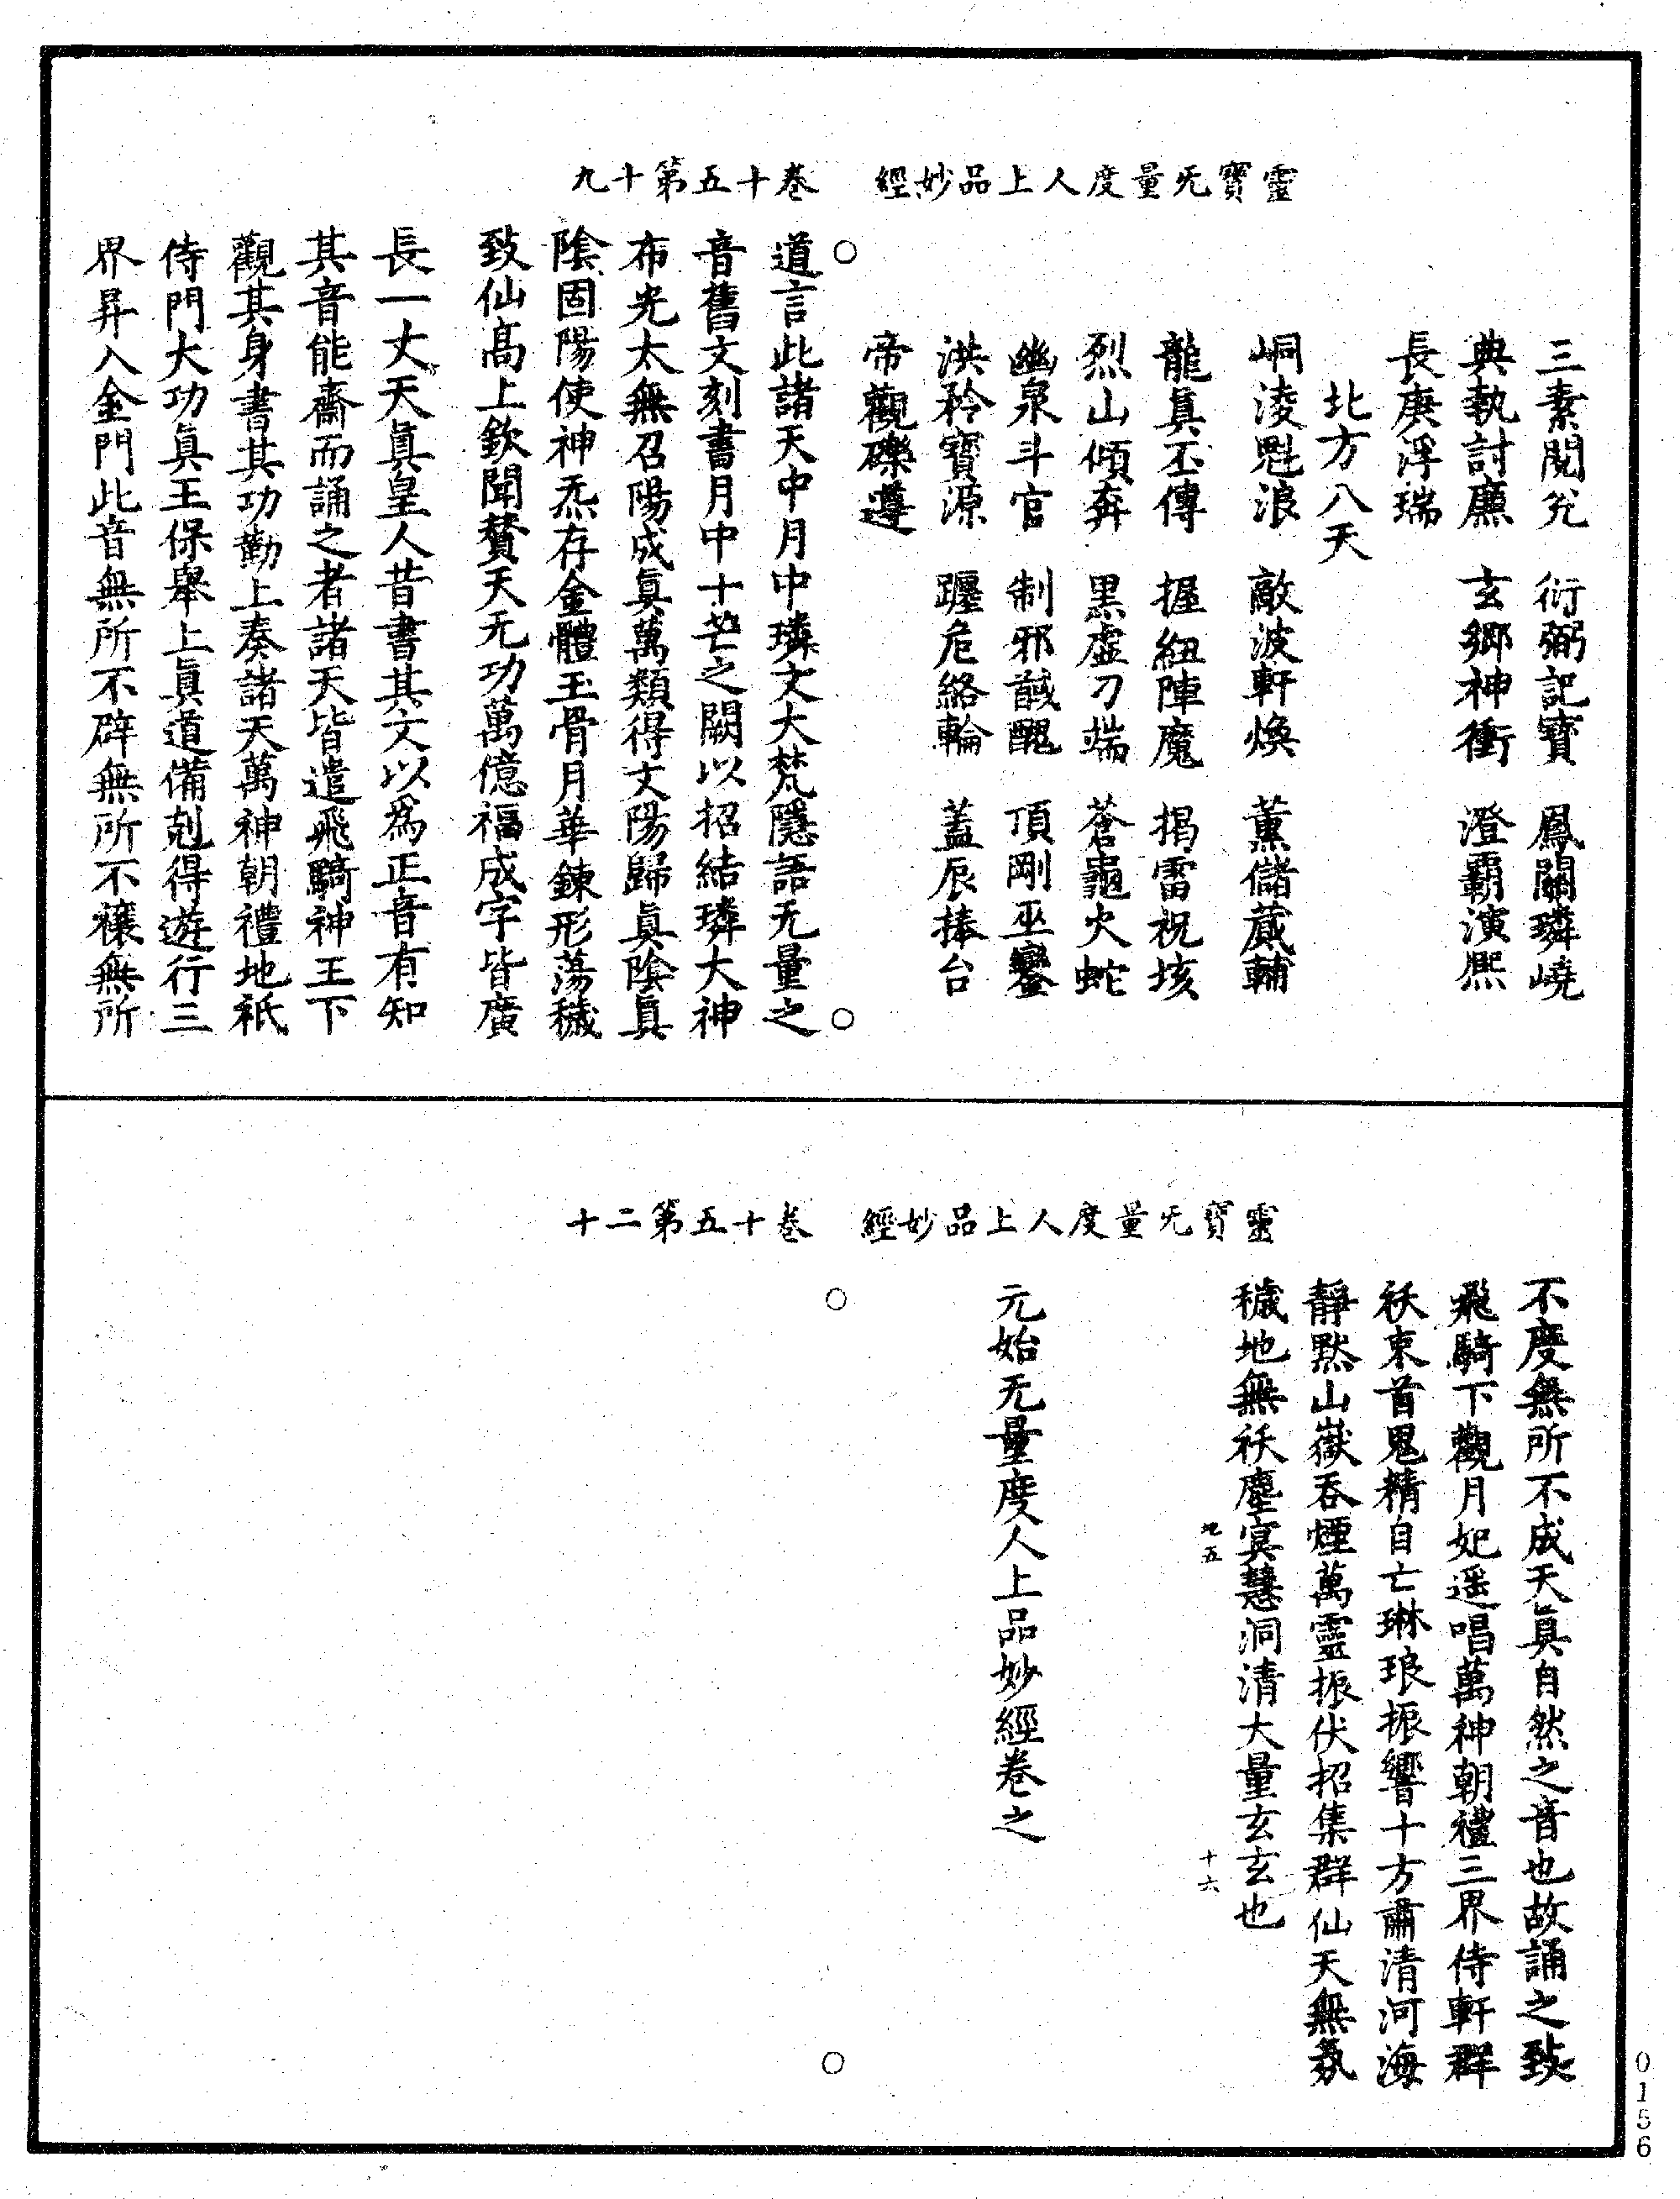 靈寶无量度人上品妙經　卷十五第十九
三素閱兊　衍弼記寶　鳳關璘嶢
典執討廪　玄鄉神衝　澄霸演熈
長庚浮瑞
北方八天
峒淩魁浪　敵波軒煥　薰儲蕆輔
龍真丕傳　握紐陣魔　揭雷祝垓
烈山傾奔　黑虛刀端　蒼龜火蛇
幽泉斗官　制邪馘醜　頂剛巫鑾
洪矜寶源　躔危絡輪　蓋辰捧台
帝觀礫遵
道言此諸天中月中璘文大梵隱語无量之
音舊文刻書月中十芒之闕以招結璘大神
布光太無召陽成真萬類得文陽歸真陰真
陰固陽使神炁存金體玉骨月華鍊形蕩穢
致仙高上欽聞贊天无功萬億福成字皆廣
長一丈天真皇人昔書其文以爲正音有知
其音能齋而誦之者諸天皆遣飛騎神王下
觀其身書其功勤上奏諸天萬神朝禮地祇
侍門大功真王保舉上真道備剋得遊行三
界昇入金門此音無所不辟無所不禳無所
靈寶无量度人上品妙經　卷十五第二十
不度無所不成天真自然之音也故誦之致
飛騎下觀月妃遥唱萬神朝禮三界侍軒群
祅束首鬼精自亡琳琅振響十方肅清河海
靜默山嶽吞煙萬靈振伏招集群仙天無氛
穢地無祅塵冥慧洞清大量玄玄也
地五　十六
元始无量度人上品妙經卷之
0156